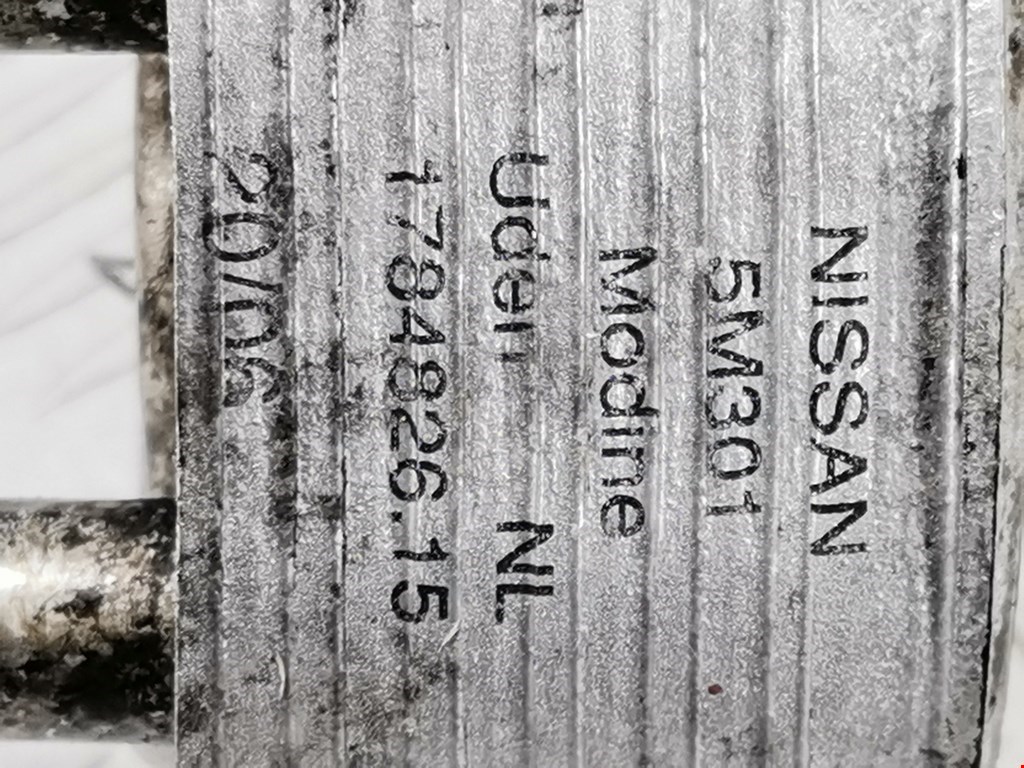 NISSAN
5M301
Modine
Uden NL
1784826.15
20/06